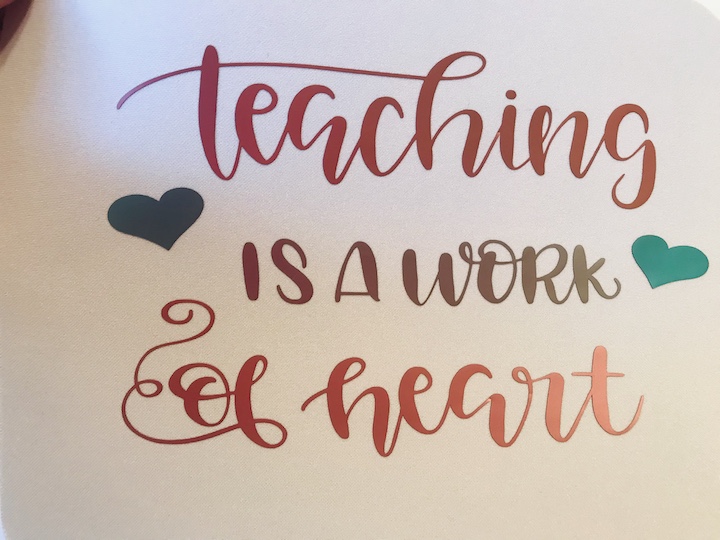 teaching
IS A WORK
of heart